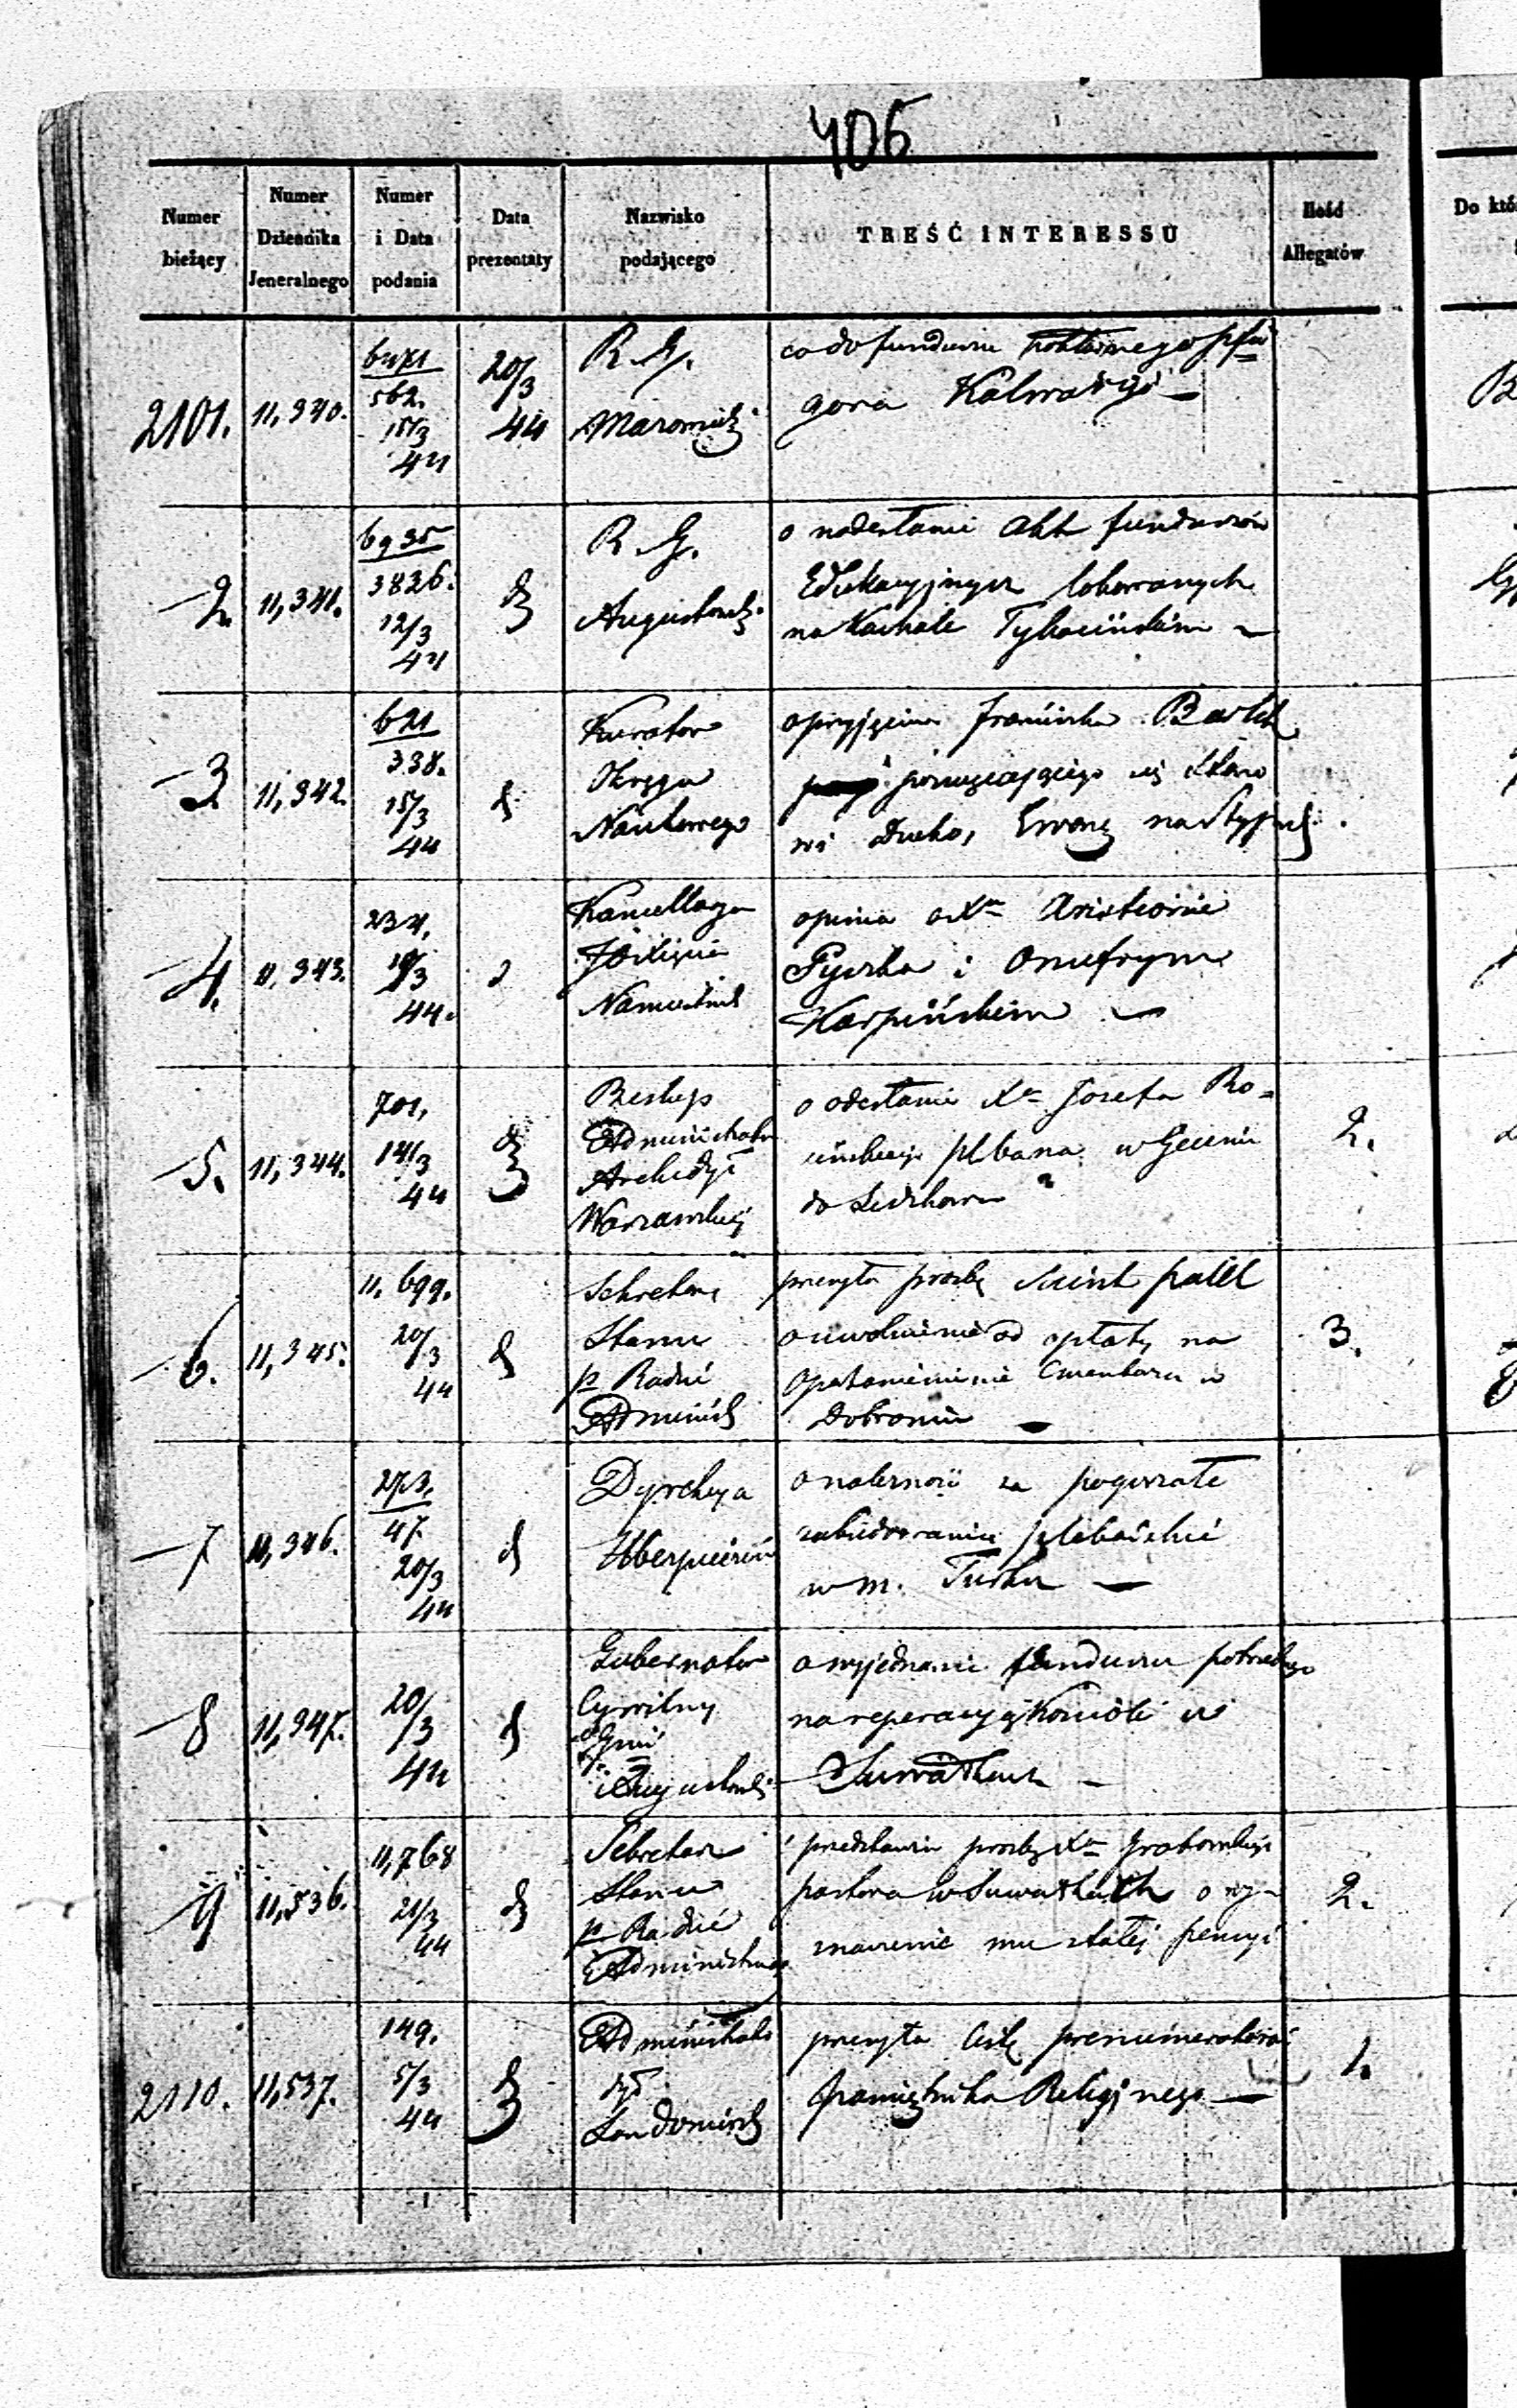 406
Numer bieżący
Numer Dziennika Jeneralnego
Numer i Data podania
Data prezentaty
Nazwisko podającego
TREŚĆ INTERESSU
Ilość Allegatów
Do któ
2101.
11,340.
562.
15/3
44
20/3
44
R. G.
co do funduszu
gora Kalwarya —
2.
11,341.
6935
3826.
12/3
44
R. G.
Augustowski
o nadesłanie Akt funduszów
Edukacyjnych lokowanych
na Kahale Tykocińskim —
3
11,342.
621
338.
15/3
44
Kurator
Okręgu
Naukowego
o przyjęciu Franciszka
poświęcającego się stano
wi Ducho,
4.
11,343.
234.
19/3
44.
Kancellarya
JO Xięcia
Namiestnik
opinia o Xu
i Onufrym
Karpińskim —
5.
11,344.
701,
14/3
44
Biskup
Administrator
Archidyi
Warszawskiej
o odesłanie Xa Józefa Ro=
plebana w
do
2.
6.
11,345.
11.699.
20/3
44
Sekretarz
Stanu
p Radzie
Administ
przesyła prośbę
o uwolnienie od opłaty na
cmentarza w
—
3.
7
11,346.
273,
47.
20/3
44
Dyrekcya
Ubezpieczeń
o należności za pogorzałe
zabudowanie plebańskie
w m. Turku —
8
11,347.
20/3
44
Gubernator
Cywilny
Gnii
Augustowski
o wyjednanie funduszu potrzebnego
na reperacyą Kościoła w
Suwałkach —
9
11,536.
11,768
21/3
44
Sekretarz
Stanu
p Radzie
Administracyj
przedstawia prośbę Xa Grabowskiego
pastora w Suwałkach o wy=
znaczenie mu stałej pensyi
2.
2110.
11,537.
149.
5/3
44
Administrator
dyi
Sandomirsk
przesyła listę prenumeratorów
Pamiętnika Religijnego —
1.